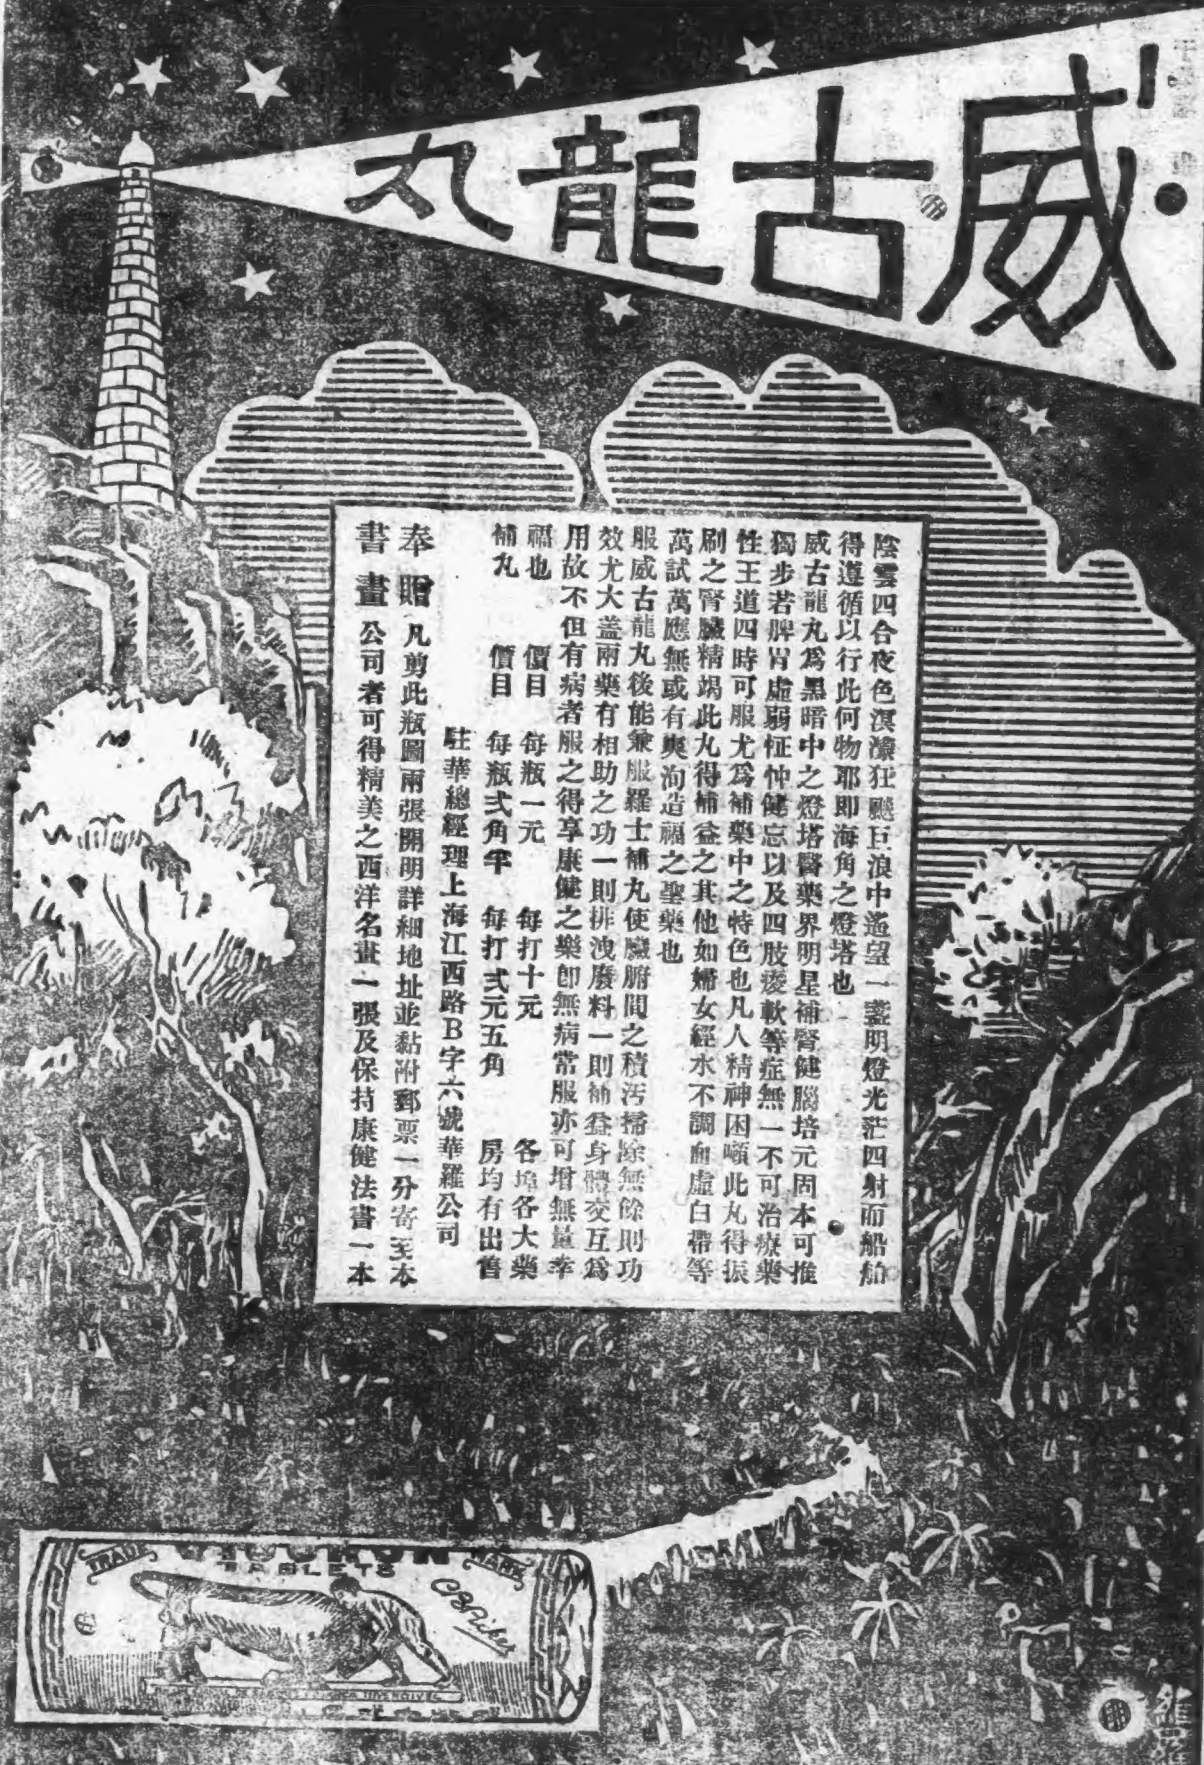 威古龍丸
陰雲四合夜色溟濛狂飈巨浪中遙望一盞明燈光茫四射而船舶
得遵循以行此何物耶即海角之燈塔也
威古龍丸爲黑暗中之燈塔醫藥界明星補腎健腦培元固本可推
獨步若脾胃虛弱怔忡健忘以及四肢痿軟等症無一不可治療藥
性王道四時可服尤爲補藥中之特色也凡人精神困頓此丸得振
刷之腎臟精竭此丸得補益之其他如婦女經水不調血虛白帶等
萬試萬應無或有爽洵造福之聖藥也
服威古龍丸後能兼服羅士補丸使臟腑間之積污掃除無餘則功
效尤大盖兩藥有相助之功一則排洩廢料一則補益身體交互爲
用故不但有病者服之得享康健之樂卽無病常服亦可增無量幸
福也　價目　每瓶一元　每打十元　各埠各大藥
補丸　價目　每瓶弍角半　每打弍元五角　房均有出售
駐華總經理上海江西路B字六號華羅公司
奉贈 凡剪此瓶圖兩張開明詳細地址並黏附郵票一分寄至本
書畫 公司者可得精美之西洋名畫一張及保持康健法書一本
TRADE MARK
TABLETS